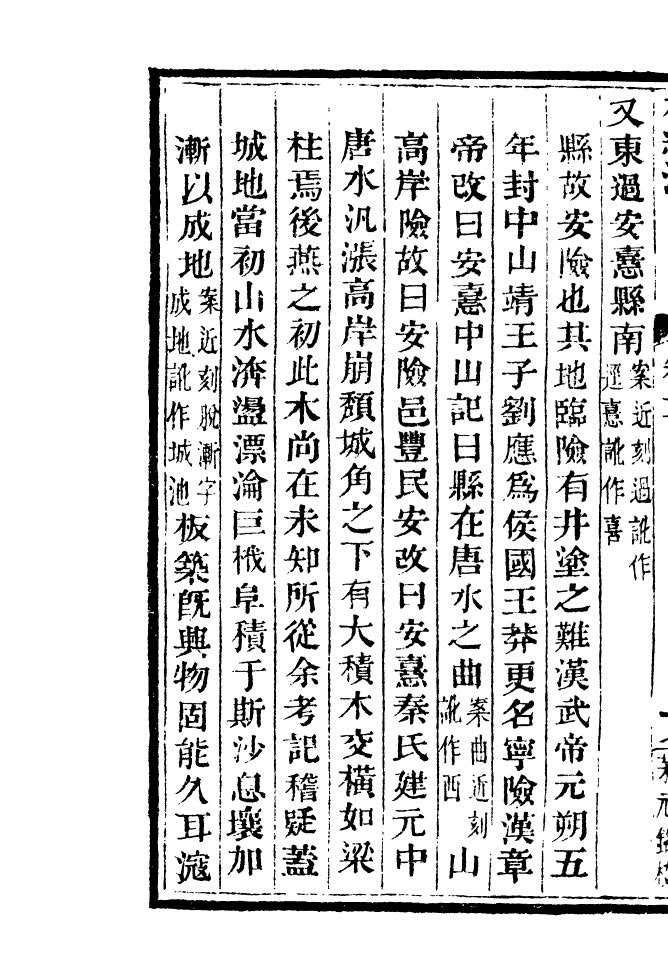 又東過安憙縣南案近刻過訛作逕憙訛作喜
縣故安險也其地臨險有井塗之難漢武帝元朔五
年封中山靖王子劉應爲侯國王莽更名寧險漢章
帝改曰安憙中山記曰縣在唐水之曲案曲近刻訛作西山
高岸險故曰安險邑豐民安改曰安憙秦氏建元中
唐水汎漲高岸崩頹城角之下有大積木交橫如梁
柱焉後燕之初此木尚在未知所從余考記稽疑蓋
城地當初山水渀盪漂淪巨栰阜積于斯沙息壤加
漸以成地案近刻脫漸字成地訛作城池板築旣興物固能久耳滱